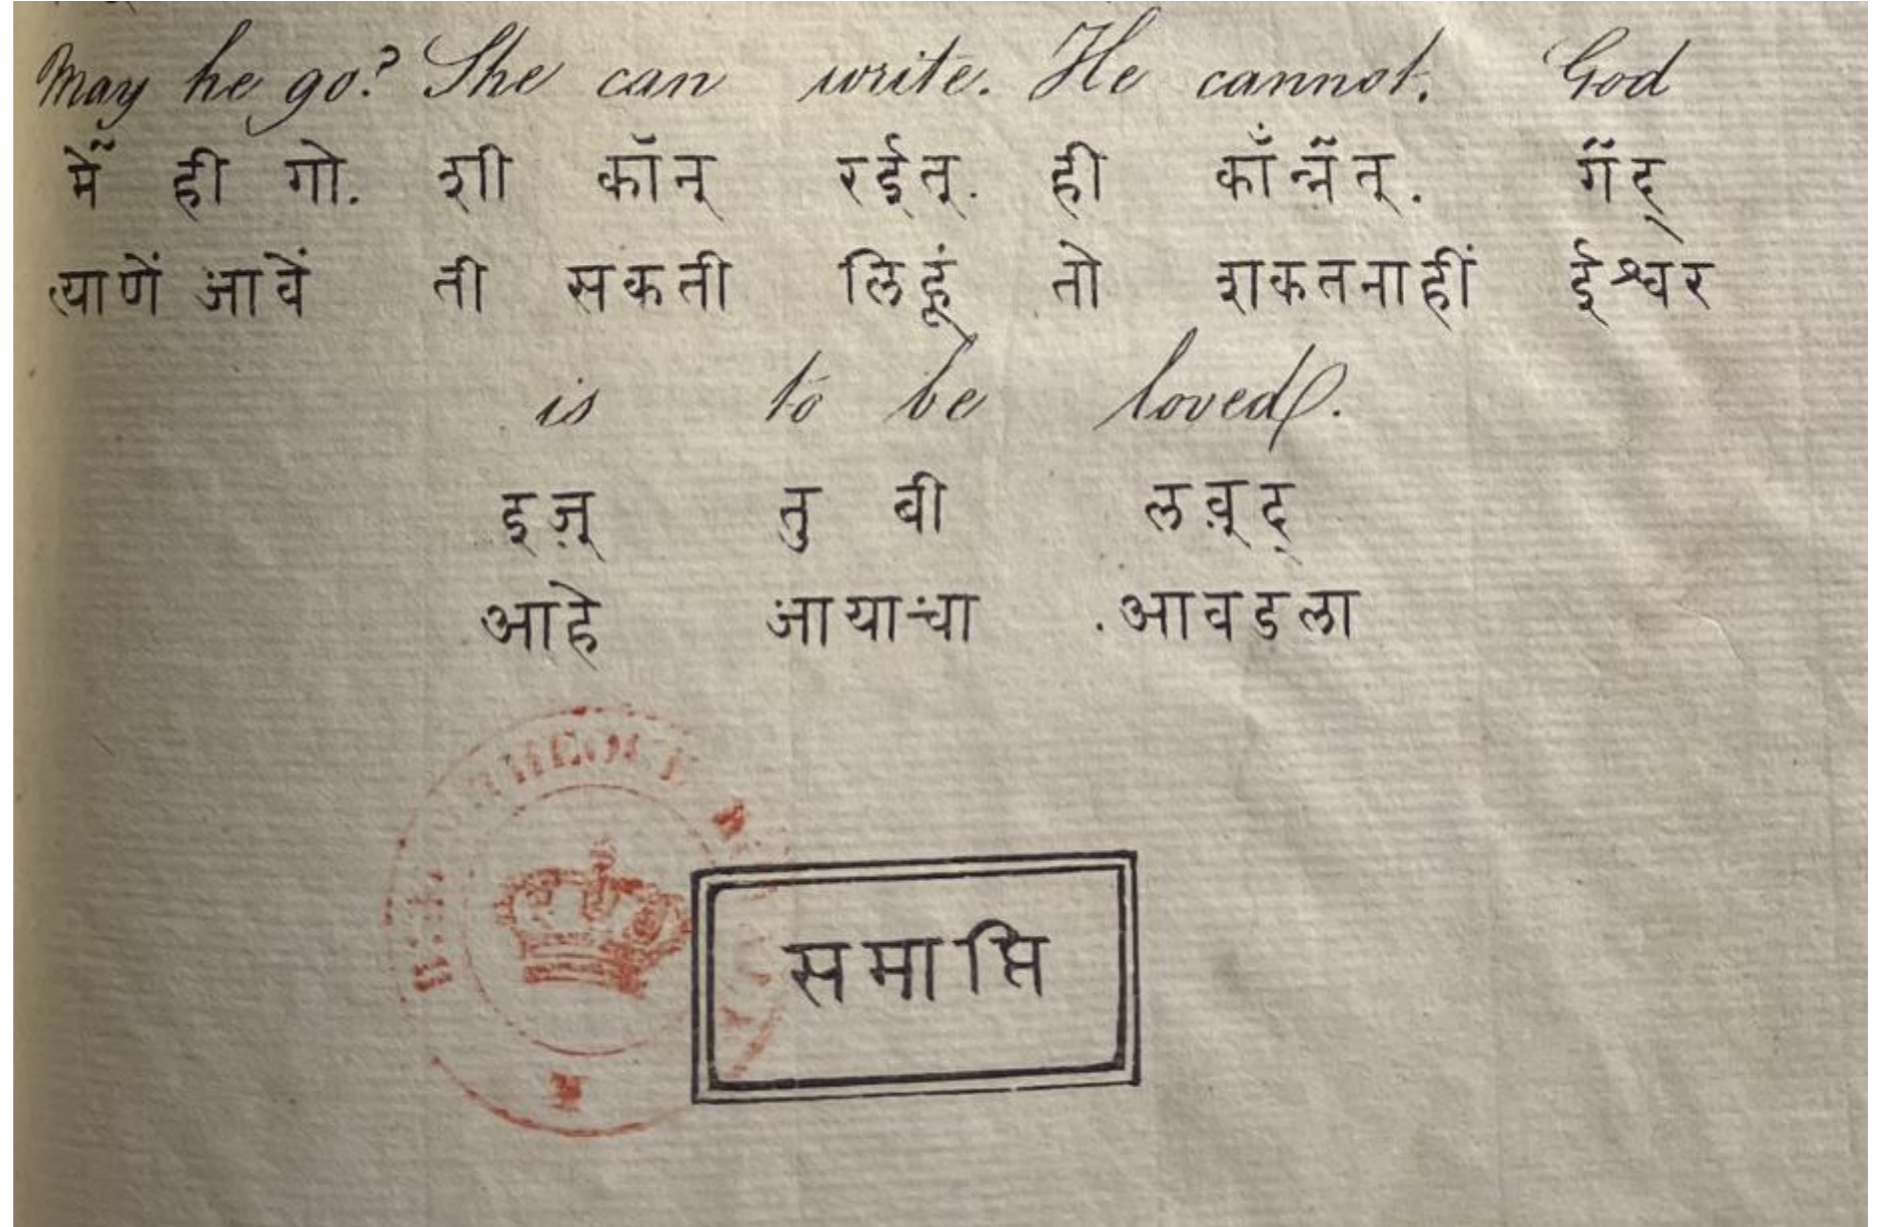 May he go? She can write. He cannot. God
में̃ ही गो. शी कॉन् रईत्. ही कॉँन्नॅत्. गॅद्
त्याणें जावें ती सकती लिहूं तो शकतनाहीं ईश्वर
is to be loved.
इज़् तु बी लव़्द्
आहे जायाचा आवडला
समाप्ति